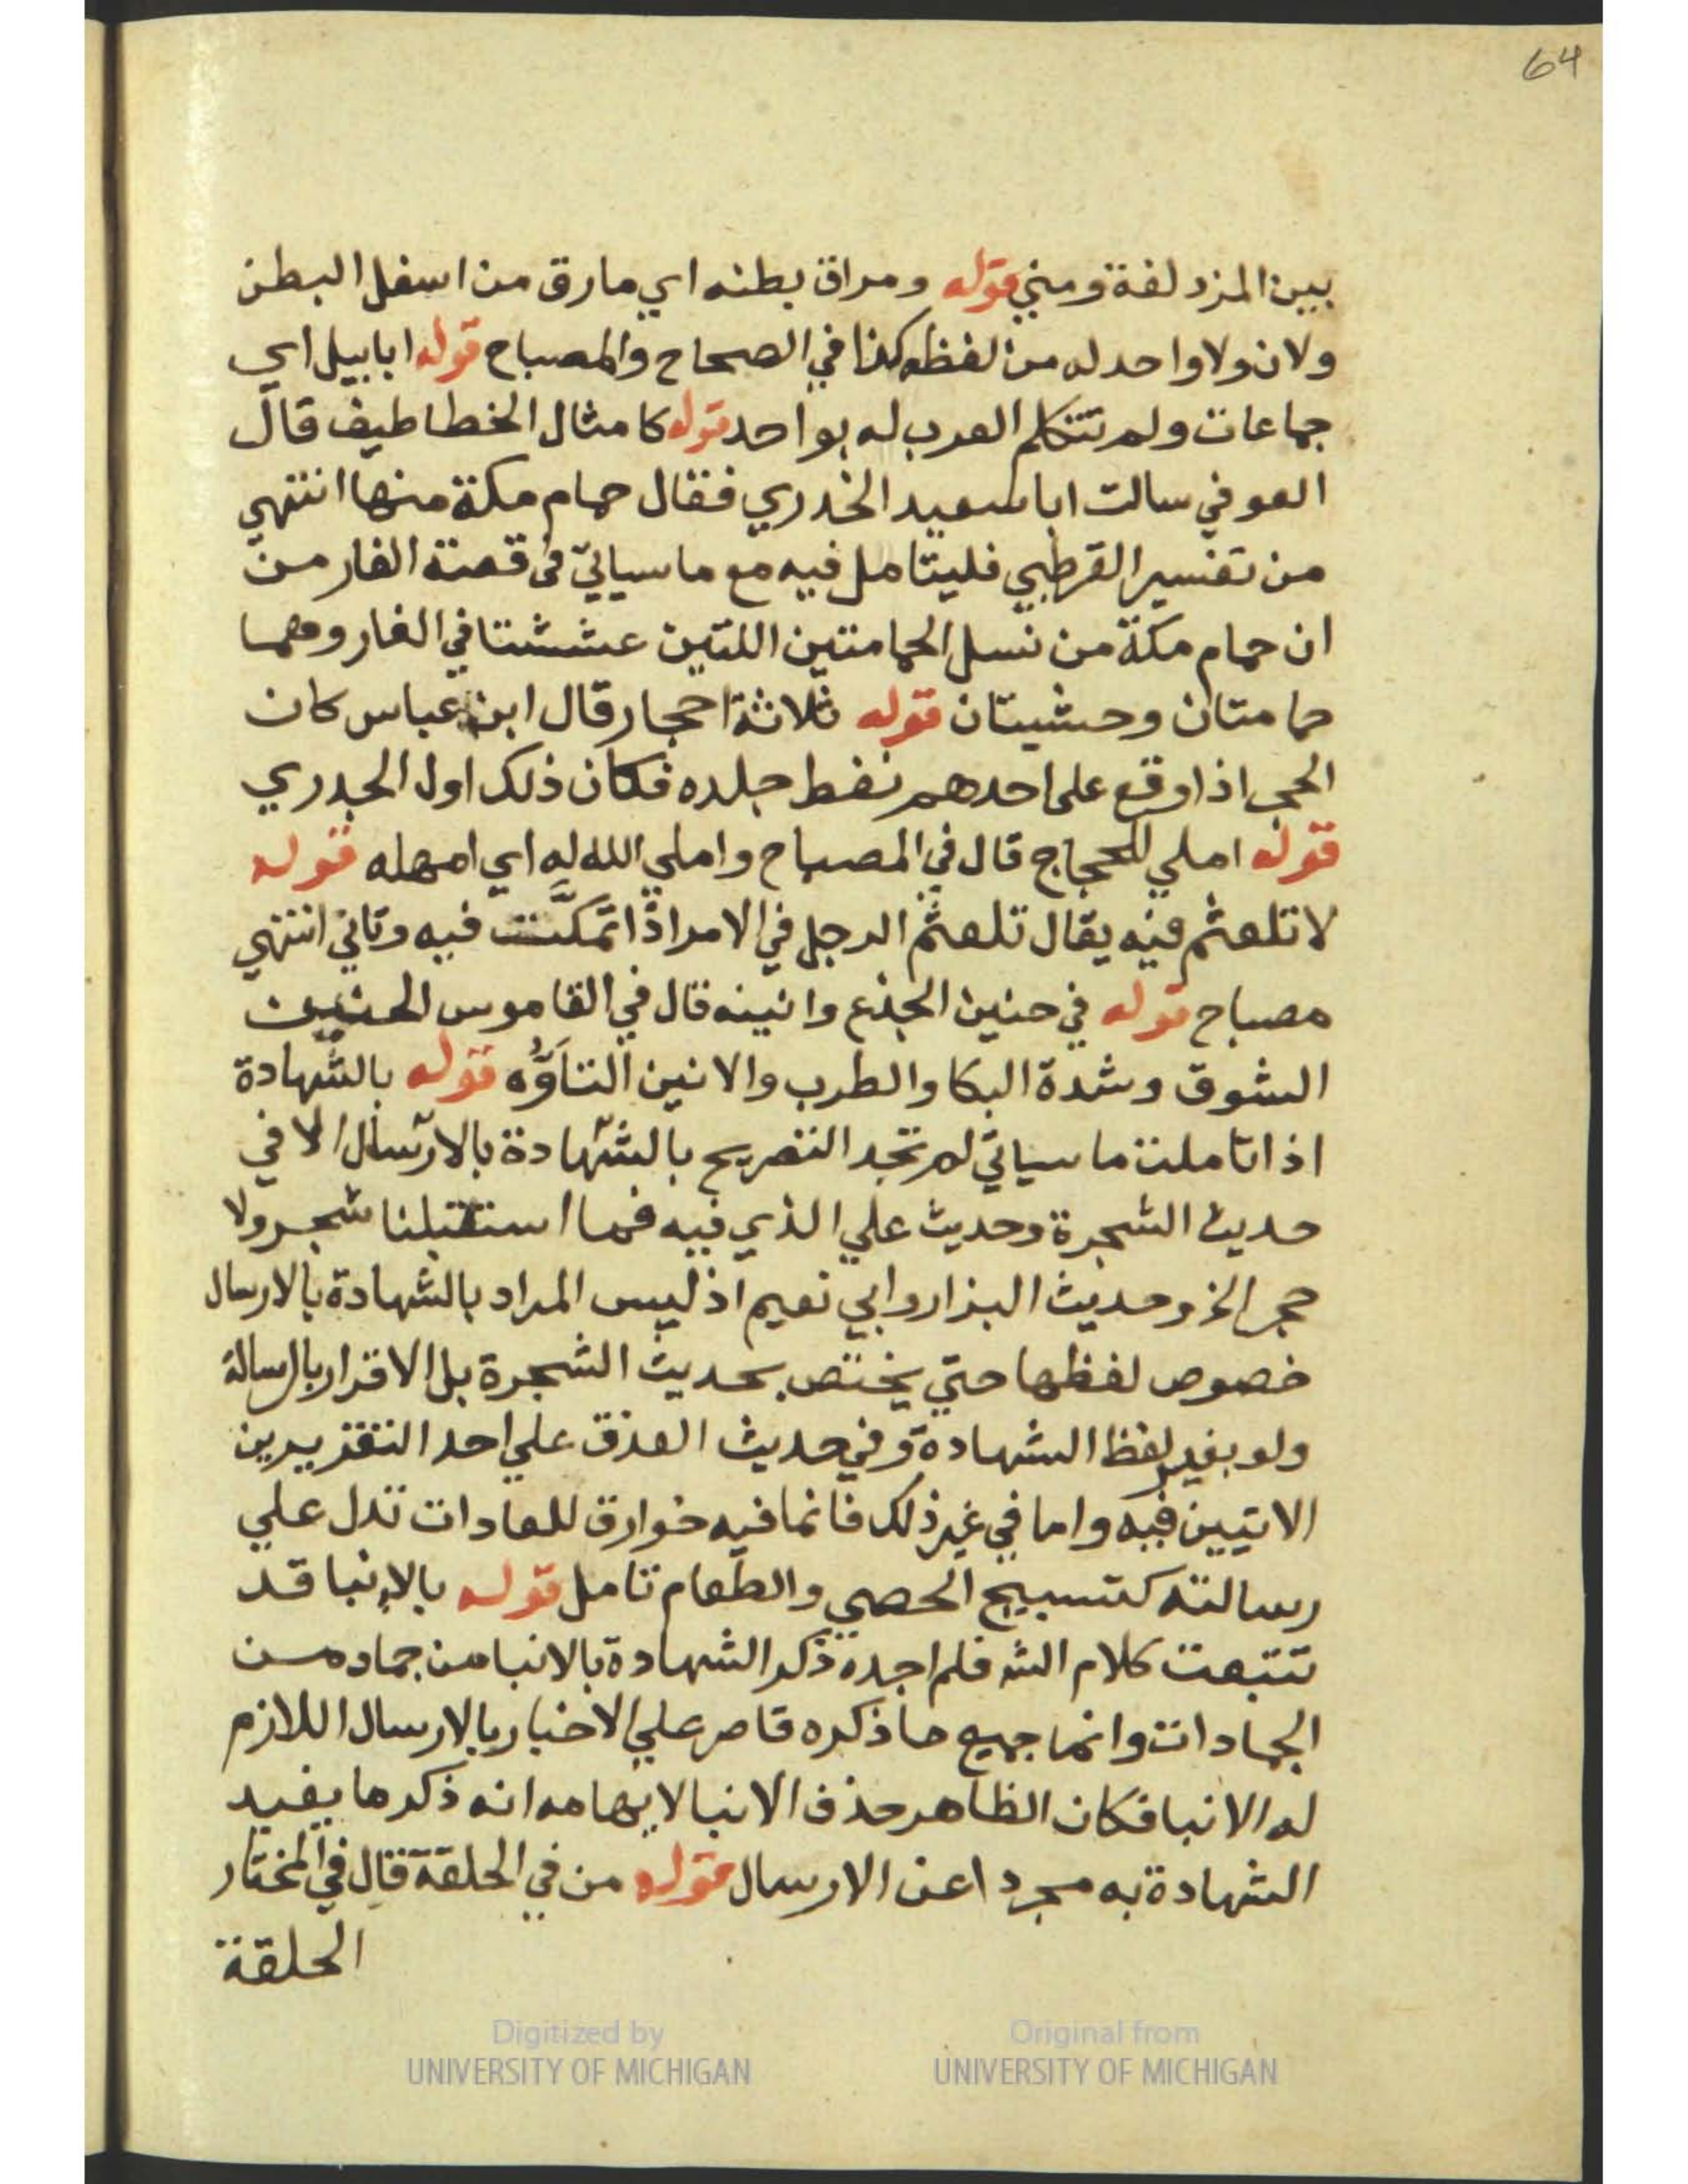 64
بين المزدلفة ومني قوله ومراق بطنه اي مارق من اسفل البطن
ولان ولا واحد له من لفظه كذا في الصحاح والمصباح قوله ابابيل اي
جماعات ولم تتكلم العرب له بواحد قوله كامثال الخطاطيف قال
العوفي سالت ابا سعيد الخدري فقال حمام مكة منها انتهي
من تفسير القرطبي فليتامل فيه مع ما سياتي في قصة الغار من
ان حمام مكة من نسل الحمامتين اللتين عششتا في الغار وهما
حمامتان وحشيتان قوله ثلاثة احجار قال ابن عباس كان
الحجر اذا وقع على احدهم نفط جلده فكان ذلك اول الجدري
قوله املي للحجاج قال في المصباح واملي الله له اي امهله قوله
لا تلعثم فيه يقال تلعثم الرجل في الامر اذا تمكَّنت فيه وتاني انتهي
مصباح قوله في حنين الجذع وانينه قال في القاموس الحنين
الشوق وشدة البكا والطرب والانين التأوُّه قوله بالشهادة
اذا تاملت ما سياتي لم تجد التصريح بالشهادة بالارسال الا في
حديث الشجرة وحديث علي الذي فيه فما استقبلنا شجر ولا
حجر الخ وحديث البزار وابي نعيم اذ ليس المراد بالشهادة بالارسال
خصوص لفظها حتي يختص بحديث الشجرة بل الاقرار بالرسالة
ولو بغير لفظ الشهادة وفي حديث العذق علي احد التقديرين
الاتيين فيه واما في غير ذلك فانما فيه خوارق للعادات تدل علي
رسالته كتسبيح الحصي والطعام تامل قوله بالإنبا قد
تتبعت كلام الشه فلم اجده ذكر الشهادة بالانبا من جماد من
الجمادات وانما جميع ما ذكره قاصر علي الاخبار بالارسال اللازم
له الانبا فكان الظاهر حذف الانبا لايهامه انه ذكر ما يفيد
الشهادة به مجردا عن الارسال قوله من في الحلقة قال في المختار
الحلقة
Digitized by
UNIVERSITY OF MICHIGAN
Original from
UNIVERSITY OF MICHIGAN